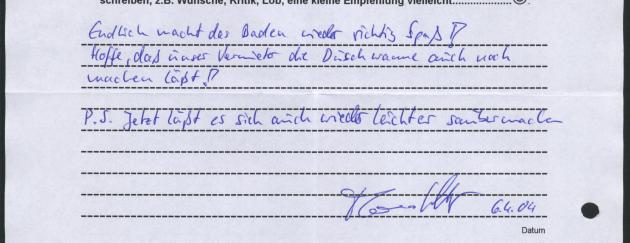 schreiben, z.B. Wünsche, Kritik, Lob, eine kleine Empfehlung vielleicht...................☺.
Endlich macht das Baden wieder richtig Spaß!!
Hoffe, daß unser Vermieter die Duschwanne auch noch
machen läßt!!
P.S. Jetzt läßt es sich auch wieder leichter saubermachen
6.4.04
Datum